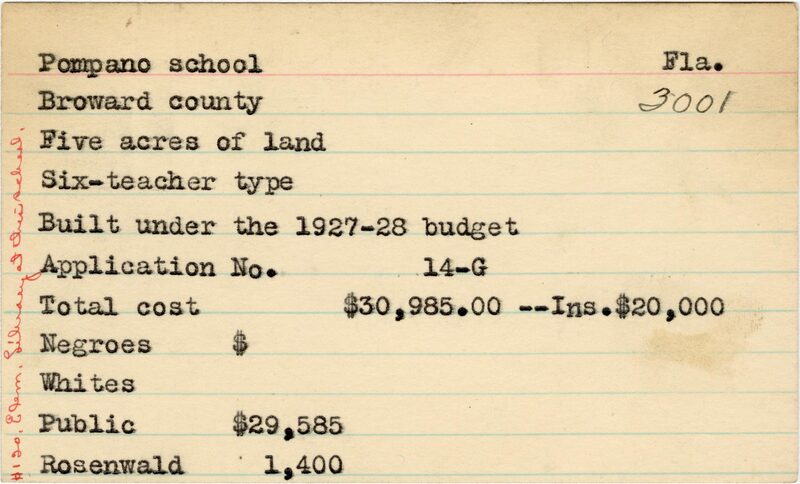 Pompano school Fla.
Broward county 3001
Five acres of land
Six-teacher type
Built under the 1927-28 budget
Application No. 14-G
Total cost $30,985.00 --Ins.$20,000
Negroes $
Whites
Public $29,585
Rosenwald 1,400
#120, Elem. Library at this school.